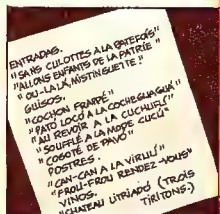 ENTRADAS.
"SANS CULOTTES A LA PATEFOIS"
"ALLONS ENFANTS DE LA PATRIE"
"OU-LA-LÁ, MISTINGUETTE"
GUISOS.
"COCHON FRAPPÉ"
"PATO LOCO A LA COCHEGUAGUÁ"
"AU REVOIR A LA CUCHUFLÍ"
"SOUFFLÉ A LA MODE CUCÚ"
"COGOTÉ DE PAVÓ"
POSTRES.
"CAN-CAN A LA VIRULÍ"
"FROU-FROU RENDEZ-VOUS"
VINOS.
"CHATEAU LITRIADÓ (TROIS
TIRITONS.)